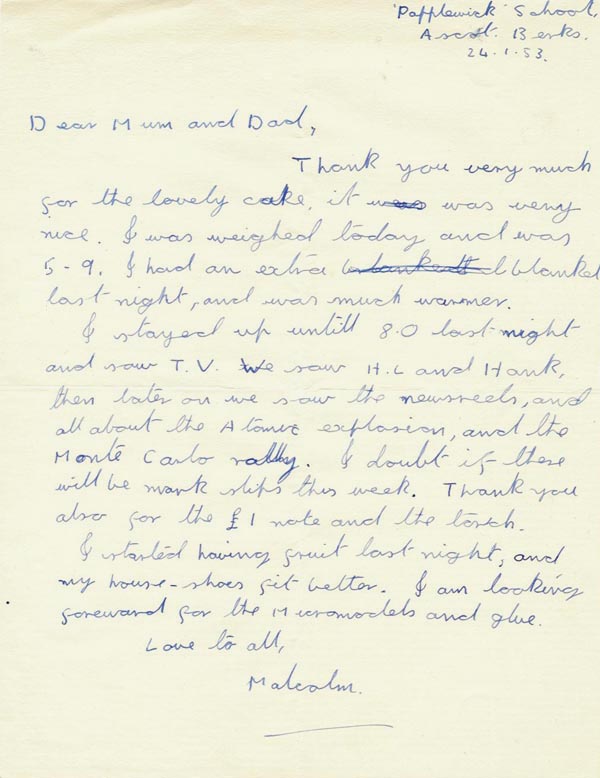 'Papplewick' School,
Ascot. Berks.
24.1.53.
Dear Mum and Dad,
Thank you very much
for the lovely cake, it was was very
nice. I was weighed today and was
5-9. I had an extra blankett blanket
last night, and was much warmer.
I stayed up untill 8.0 last night
and saw T.V. We saw H.L and Hank,
then later on we saw the newsreels, and
all about the Atomic explosion, and the
Monte Carlo rally. I doubt if there
will be mark slips this week. Thank you
also for the £1 note and the torch.
I started having fruit last night, and
my house-shoes fit better. I am looking
foreward for the Micromodels and glue.
Love to all,
Malcolm.